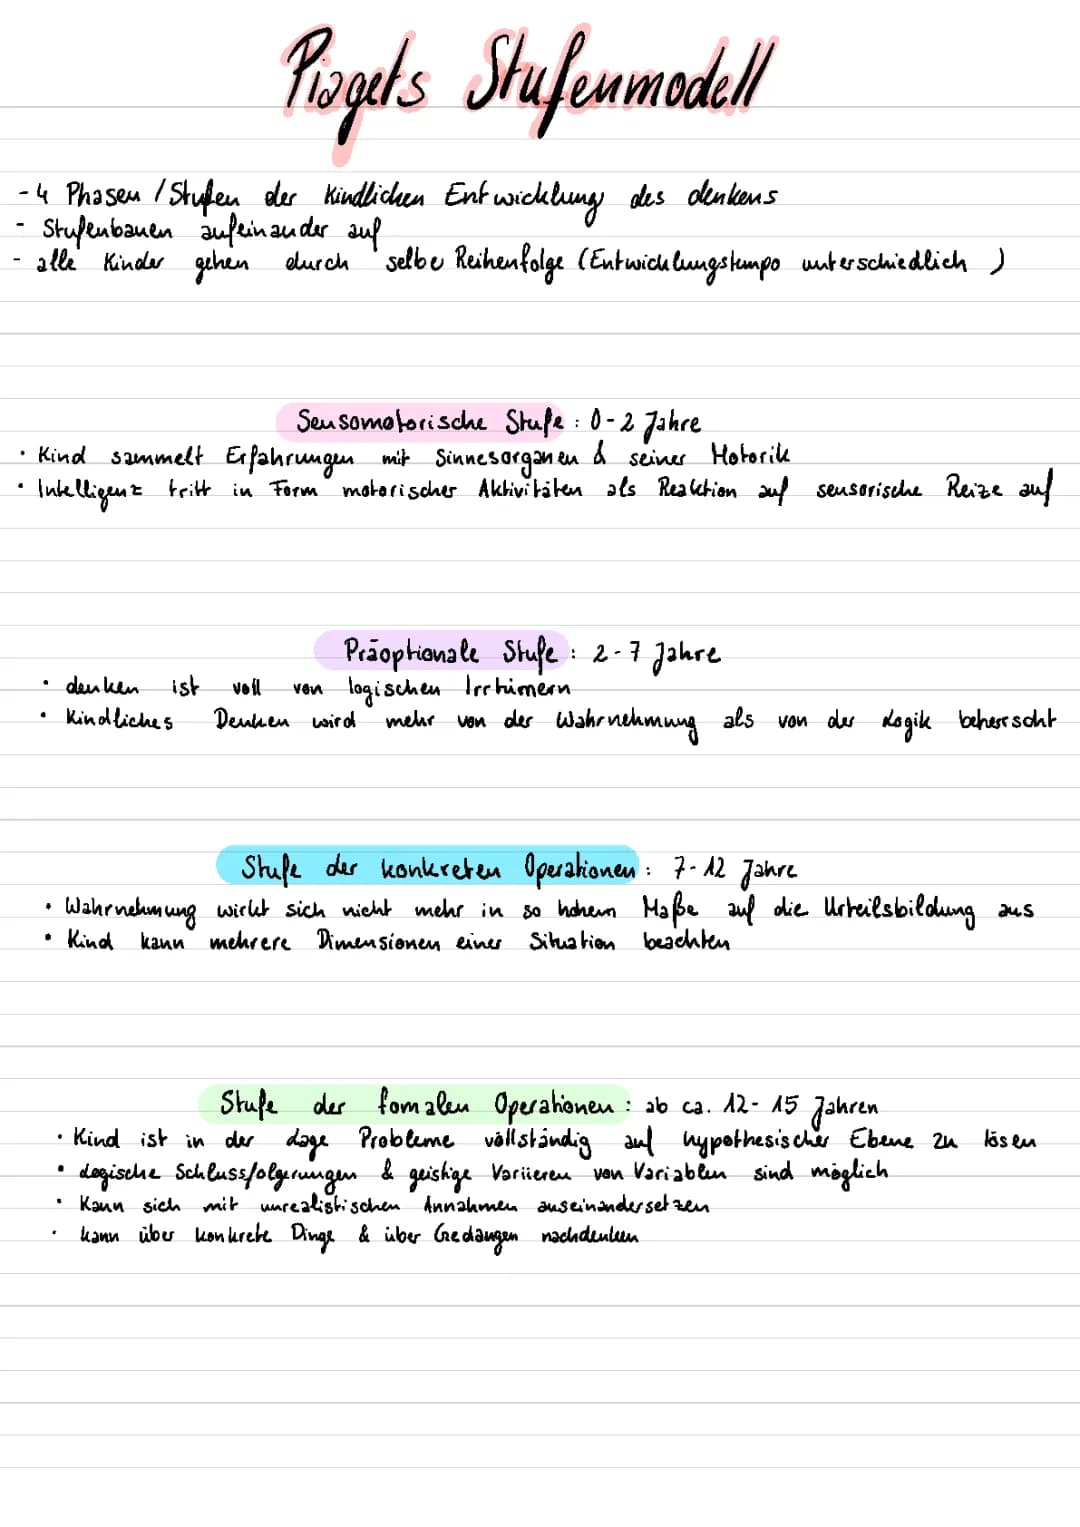 Piagets Stufenmodell
- 4 Phasen / Stufen der kindlichen Entwicklung des denkens
- Stufenbauen aufeinander auf
- alle Kinder gehen durch selbe Reihenfolge (Entwicklungstempo unterschiedlich )
Sensomotorische Stufe : 0-2 Jahre
• Kind sammelt Erfahrungen mit Sinnesorganen & seiner Motorik
• Intelligenz tritt in Form motorischer Aktivitäten als Reaktion auf sensorische Reize auf
Präoptionale Stufe : 2-7 Jahre
• denken ist voll von logischen Irrtümern
• Kindliches Denken wird mehr von der Wahrnehmung als von der Logik beherrscht
Stufe der konkreten Operationen : 7-12 Jahre
• Wahrnehmung wirkt sich nicht mehr in so hohem Maße auf die Urteilsbildung aus
• Kind kann mehrere Dimensionen einer Situation beachten
Stufe der fomalen Operationen : ab ca. 12-15 Jahren
• Kind ist in der Lage Probleme vollständig auf hypothesischer Ebene zu lösen
• Logische Schlussfolgerungen & geistige Variieren von Variablen sind möglich
• Kann sich mit unrealistischen Annahmen auseinandersetzen
• kann über konkrete Dinge & über Gedangen nachdenken